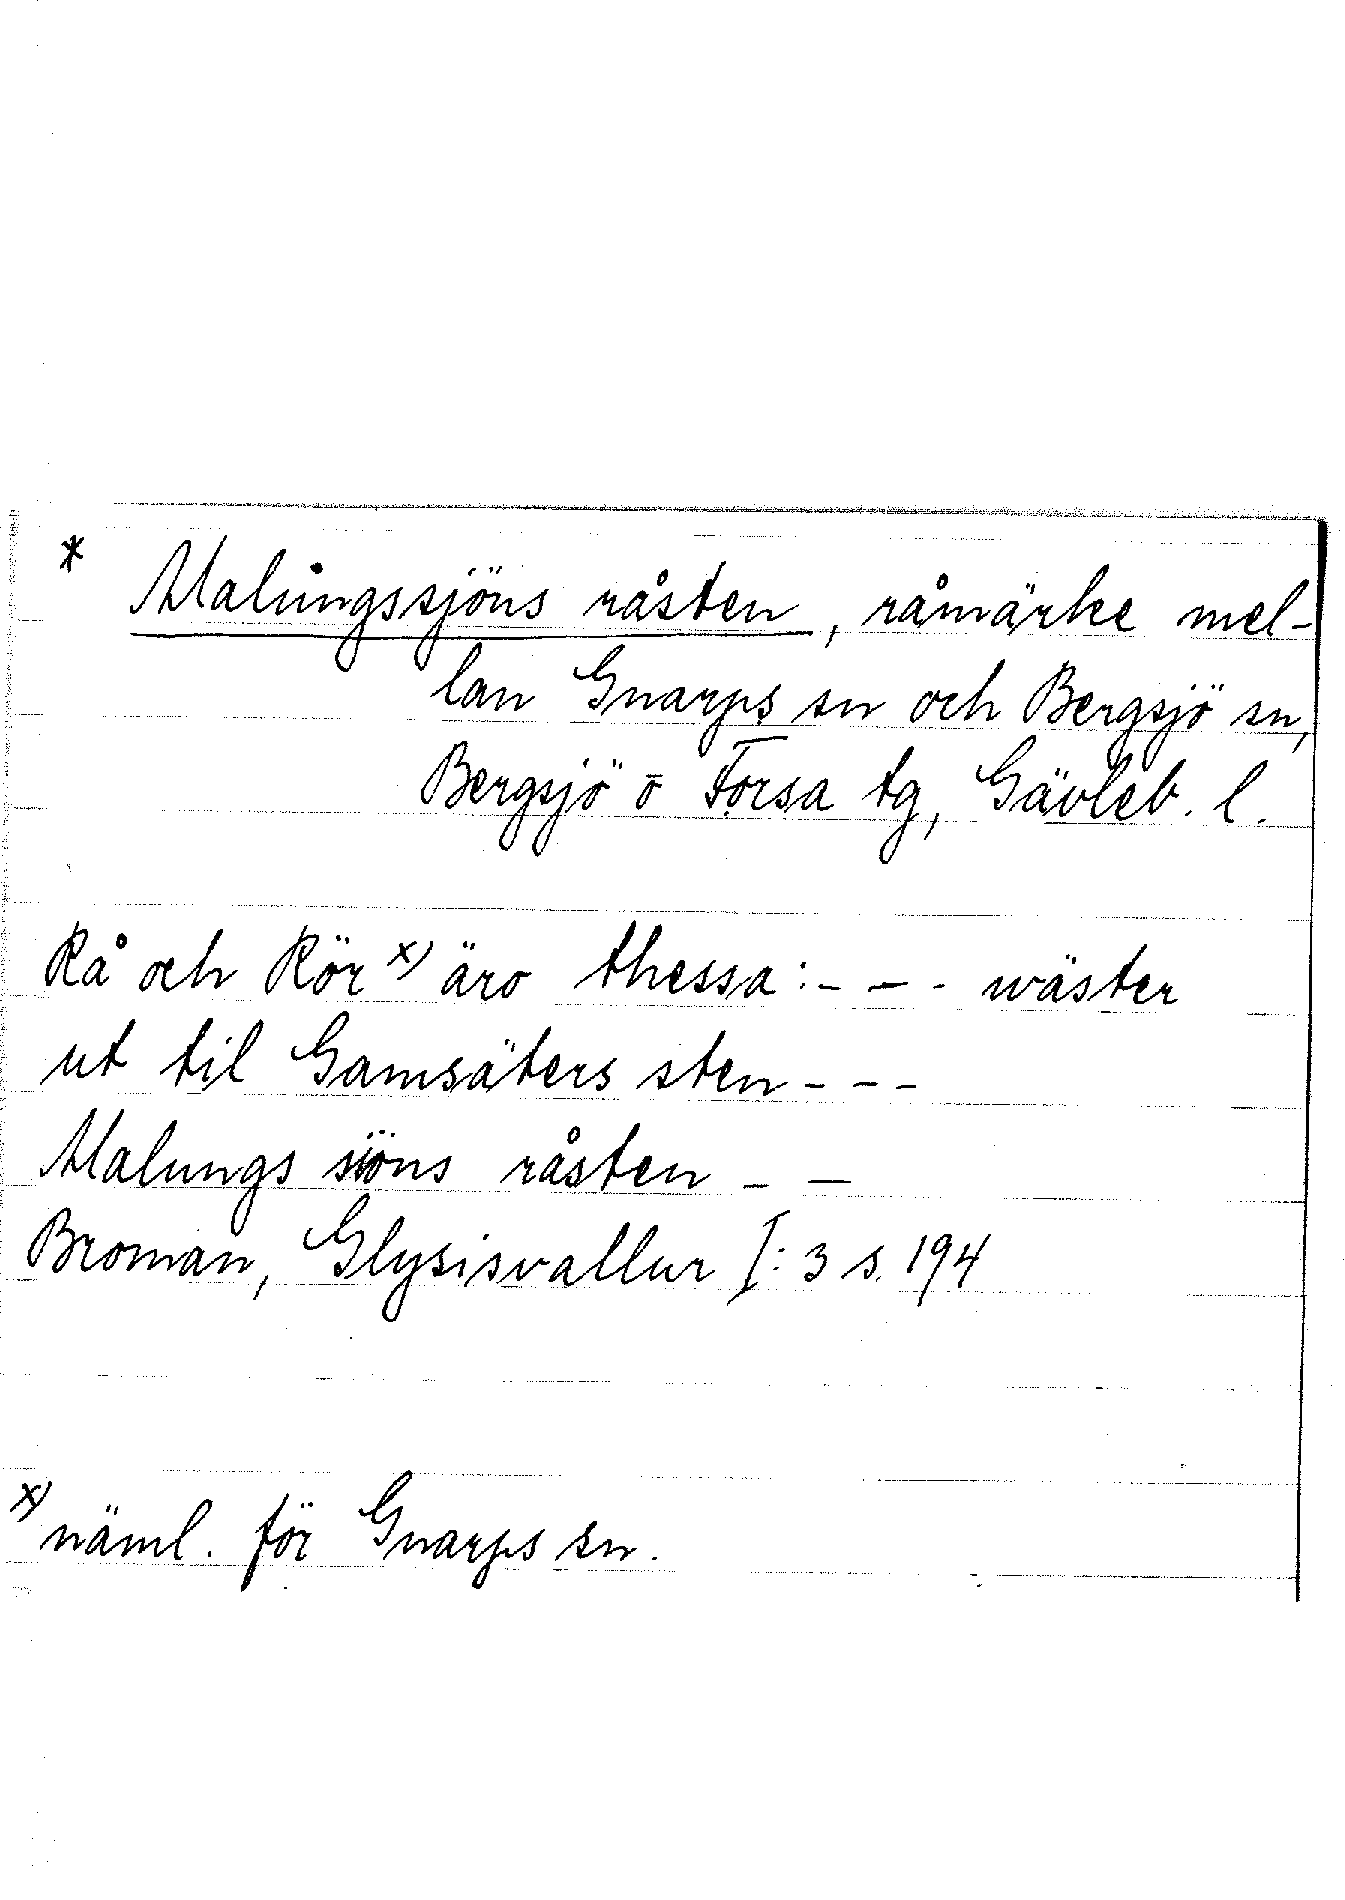 * Malungssjöns råsten, råmärke mel-
lan Gnarps sn och Bergsjö sn,
Bergsjö o Forsa tg, Gävleb. l.
Rå och Rör x) äro thessa: - - - wäster
ut til Gamsäters sten - - -
Malungs siöns råsten - -
Broman, Glysisvallur I:3 s. 194
x) näml. för Gnarps sn.